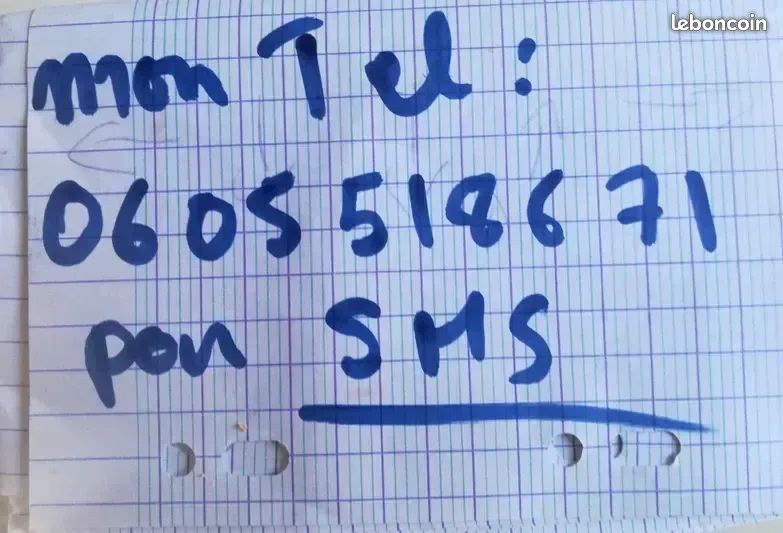 leboncoin
mon Tel :
0605518671
pon SMS